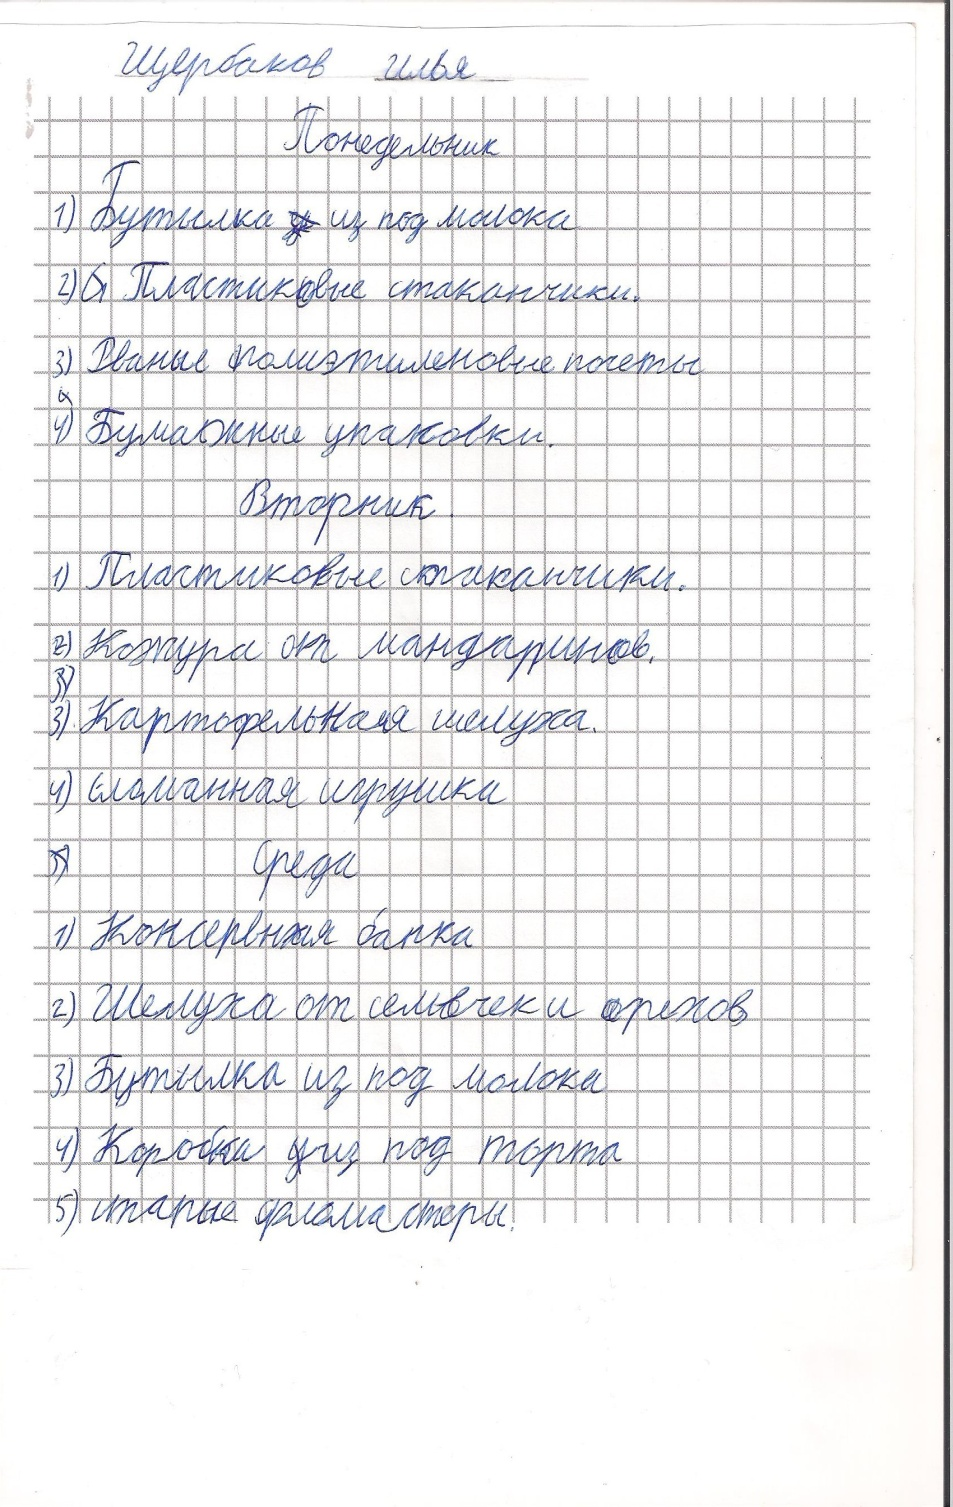 Щербаков Илья
Понедельник
1) Бутылка из под молока
2) Пластиковые стаканчики.
3) Рваные полиэтиленовые почеты
4) Бумажные упаковки.
Вторник.
1) Пластиковые стаканчики.
2) Кожура от мандаринов.
3) Картофельная шелуха.
4) сломанная игрушка
Среда
1) Консервная банка
2) Шелуха от семечек и орехов
3) Бутылка из под молока
4) Коробка из под торта
5) старые фломастеры.